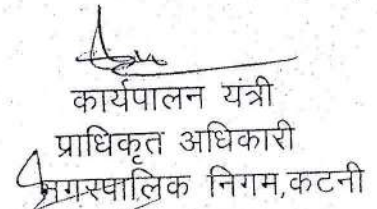 कार्यपालन यंत्री
प्राधिकृत अधिकारी
नगरपालिक निगम,कटनी